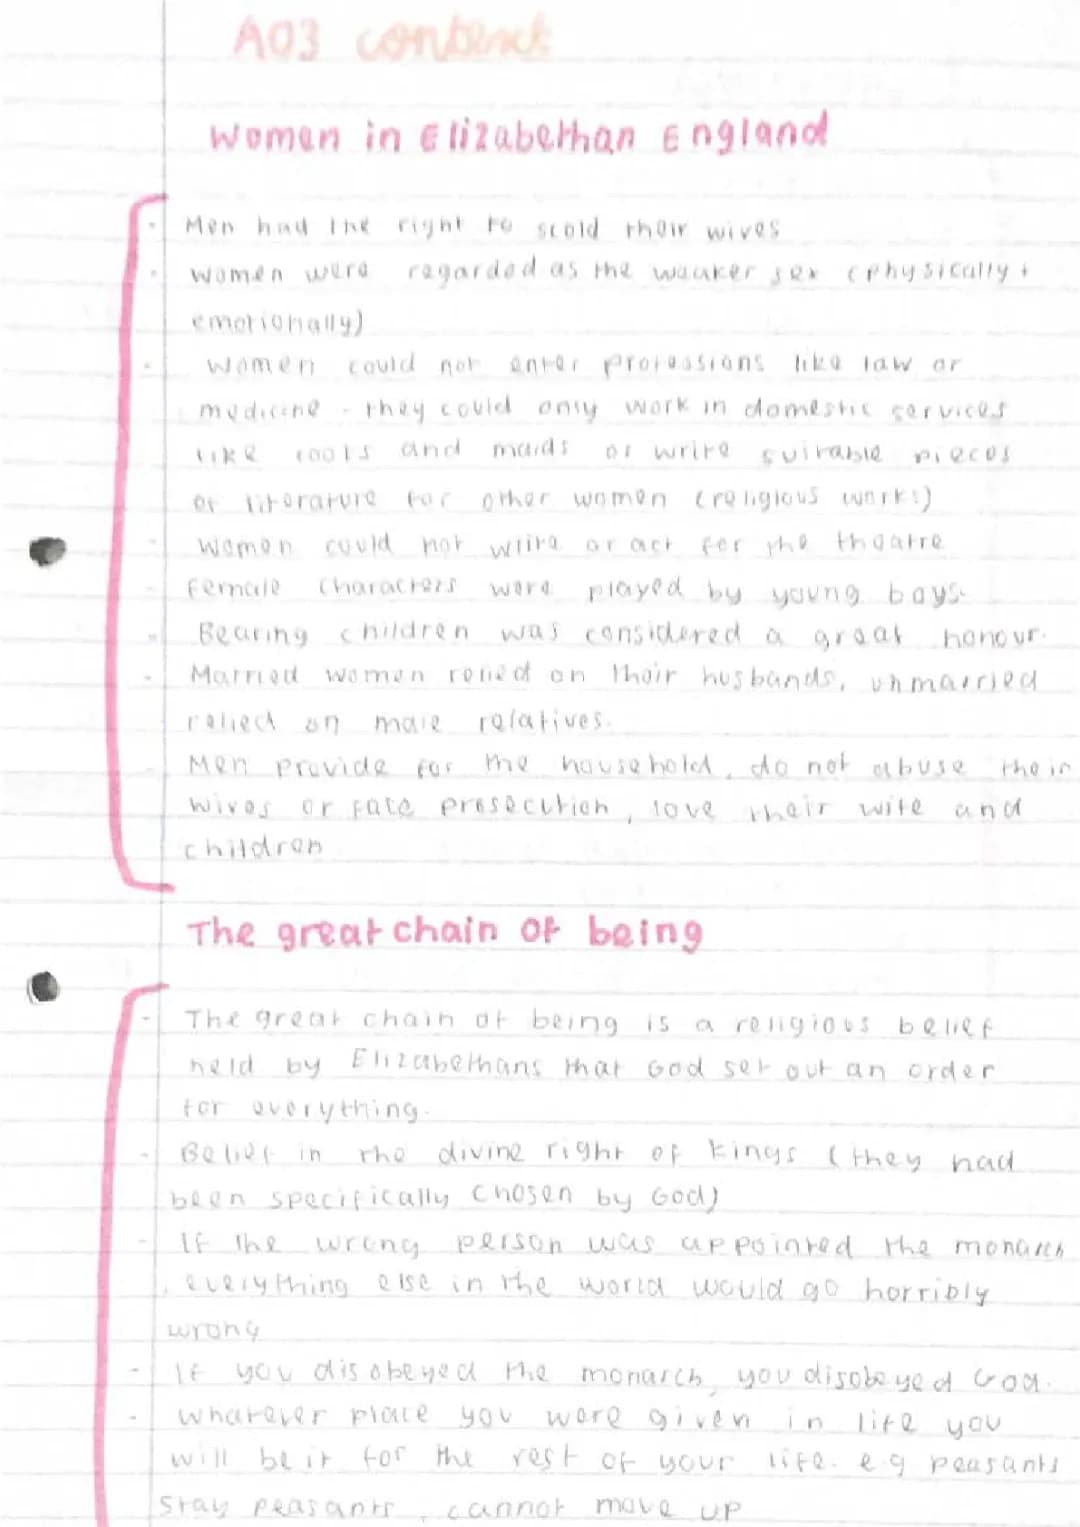 AO3 context
Women in Elizabethan England
- Men had the right to scold their wives
- Women were regarded as the weaker sex (physically +
emotionally)
- Women could not enter professions like law or
medicine - they could only work in domestic services
like cooks and maids or write suitable pieces
of literature for other women (religious works)
- Women could not write or act for the theatre
- Female characters were played by young boys.
- Bearing children was considered a great honour.
- Married women relied on their husbands, unmarried
relied on male relatives.
- Men provide for the household, do not abuse their
wives or face prosecution, love their wife and
children
The great chain of being
- The great chain of being is a religious belief
held by Elizabethans that God set out an order
for everything.
- Belief in the divine right of kings (they had
been specifically chosen by God)
- If the wrong person was appointed the monarch
, everything else in the world would go horribly
wrong
- If you disobeyed the monarch, you disobeyed God.
- Whatever place you were given in life you
will be it for the rest of your life. e.g peasants
stay peasants, cannot move up